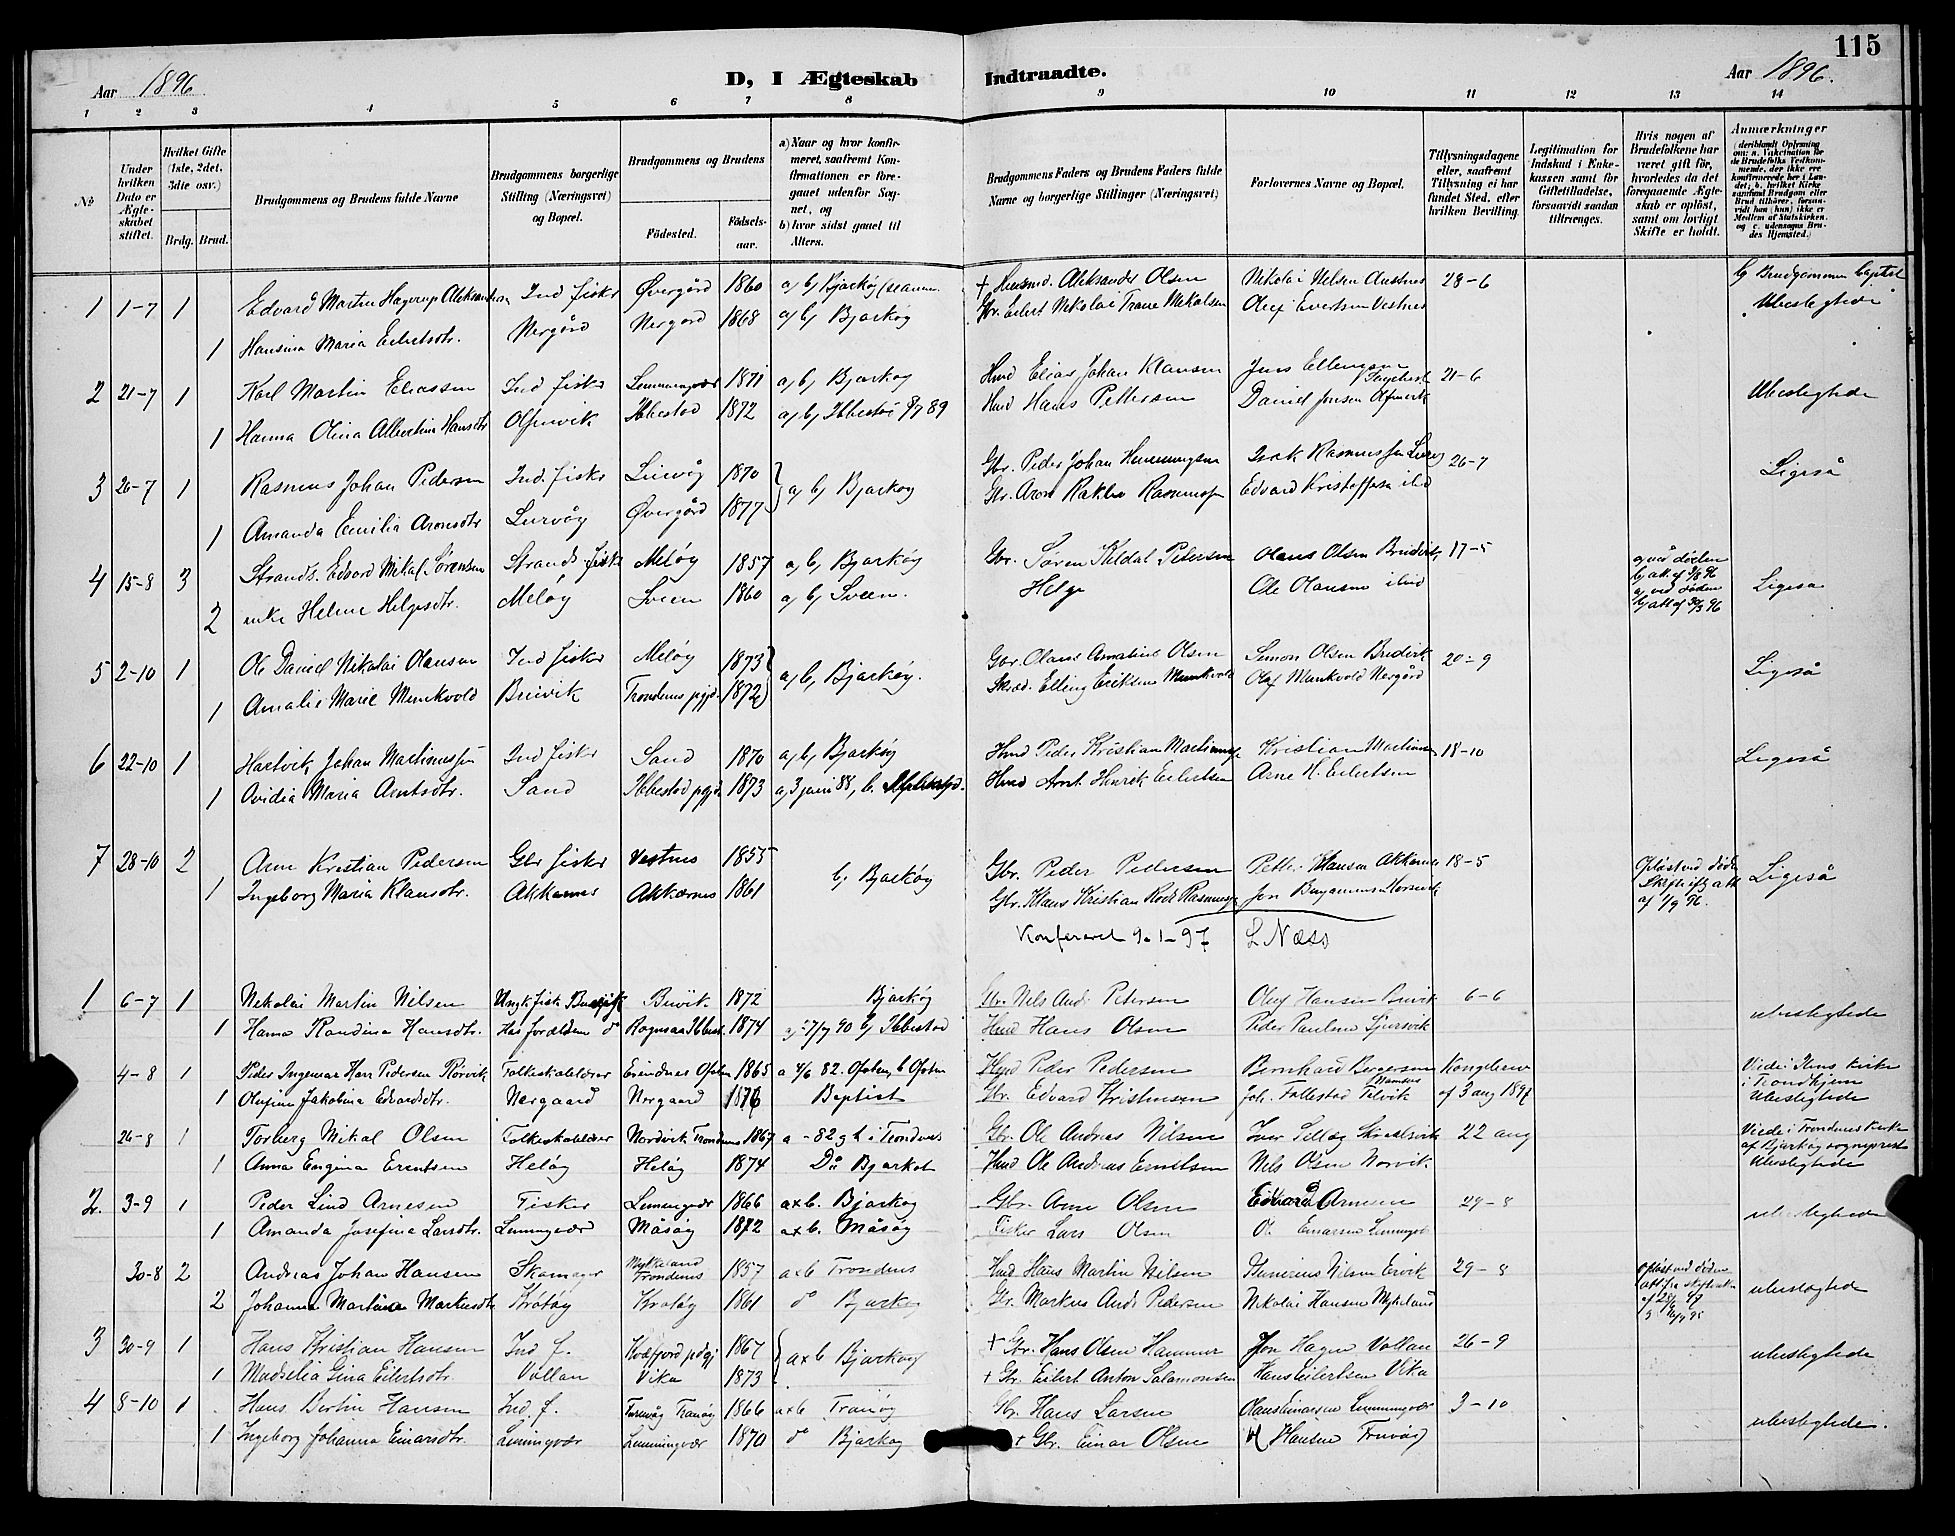 115
Aar 1896.
D, I Ægteskab Indtraadte.
Aar 1896.
1 2 3 4 5 6 7 8 9 10 11 12 13 14
№
Under hvilken Dato er Ægteskabet stiftet.
Hvilket Gifte (1ste, 2det, 3dte osv.)
Brdg. Brud.
Brudgommens og Brudens fulde Navne
Brudgommens borgerlige Stilling (Næringsvei) og Bopæl.
Brudgommens og Brudens
Fødested. Fødselsaar.
a) Naar og hvor konfirmeret, saafremt Konfirmationen er foregaaet udenfor Sognet, og
b) hvor sidst gaaet til Alters.
Brudgommens Faders og Brudens Faders fulde Navne og borgerlige Stillinger (Næringsvei)
Forlovernes Navne og Bopæl.
Tillysningsdagene eller, saafremt Tillysning ei har fundet Sted, efter hvilken Bevilling.
Legitimation for Indskud i Enkekassen samt for Giftetilladelse, forsaavidt saadan tiltrænges.
Hvis nogen af Brudefolkene har været gift før, hvorledes da det foregaaende Ægteskab er opløst, samt om lovligt Skifte er holdt.
Anmærkninger (deriblandt Oplysning om: a. Vakcination for de Brudefolks Vedkommende, der ikke ere konfirmerede her i Landet; b. hvilket Kirkesamfund Brudgom eller Brud tilhører, forsaavidt han (hun) ikke er Medlem af Statskirken, og c. udensogns Brudes Hjemsted.)
1 1-7 1 Edvard Martin Hagerup Aleksandersen Ind fisker Øvergård 1860 a, b, Bjarkøy + Husmd. Aleksander Olsen Nikolai Nilsen Austnes 28-6 b, Brudgommen baptist
1 Hansina Maria Eilertsdtr. Nergård Nergård 1868 a, b, Bjarkøy Gbr. Eilert Nikolai Trane Mikalsen Olaf Evertsen Vestnes Ubeslegtede
2 21-7 1 Karl Martin Eliassen Ind fisker Lemmingvær 1871 a, b, Bjarkøy Husd Elias Johan Klausen Jens Ellingsen 21-6
1 Hanna Olina Albertina Hansdtr Ibbestad 1872 a, b, Ibbestad 89 Husd Hans Pettersen Daniel Jensen Ubeslegtede
3 26-7 1 Rasmus Johan Pedersen Ind. fisker 1870 a, b, Bjarkøy Gbr. Peder Johan Henningsen Isak Rasmussen 26-7 Ligeså
1 Amanda Emilia Aronsdtr Øvergård 1877 Gbr. Aron Rasmussen Edvard Kristoffersen ibd
4 15-8 3 Strands. Edvard Mikal Sørensen Strands. fisker Meløy 1857 a, b, Bjarkøy Gbr. Søren Kildal Petersen Olaus Olsen 17-5 a, ved døden b, att. af 3/8 96
2 enke Helene Helgesdtr. Meløy Sveen 1860 a, b, Sveen. Helge Ole Olausen ibid a, ved døden b, att af 96 Ligeså
5 2-10 1 Ole Daniel Nikolai Olausen Ind fisker Meløy 1873 a, b, Bjarkøy. Gbr. Olaus Olsen Simon Olsen Bredvik 20-9 Ligeså
1 Amalie Marie Munkvold Breivik Trondenes pgjd. 1872 Skræd. Elling Eriksen Munkvold Olaf Munkvold Nergård
6 22-10 1 Hartvik Johan Martinussen Ind fisker Sand 1870 a, b, Bjarkøy Husd Peder Kristian Martinussen Kristian Martinsen 18-10 Ligeså
1 Ovidia Maria Arntsdtr. Sand Ibbestad pgjd. 1873 a, 3 juni 88, b, Husd Arnt Henrik Eilertsen Arne H. Eilertsen
7 28-10 2 Arne Kristian Pedersen Gbr fisker Vestnes 1855 b, Bjarkøy Gbr. Peder Pedersen Petter Hansen Akkernes 18-5 Opløst ved døden Skifte att af 1/9 96. Ligeså
1 Ingeborg Maria Klausdtr. Akkernes Akkærnes 1861 Gbr. Klaus Kristian Rasmussen Jon Benjaminsen
Konfereret 9-1-97 L Næss
1 6-7 1 Nikolai Martin Nilsen Ungk. fisk Breivik Breivik 1872 Bjarkøy Gbr. Nils Andr. Petersen Oluf Hansen Breivik 6-6 ubeslegtede
1 Hanna Randina Hansdtr. Hos forældrene do 1874 a 27/7 90 b, Ibbestad Husd Hans Olsen Peder Paulsen
4-8 1 Peder Ingemar Hars Pedersen Rørvik Folkeskolelærer Evendnes Ofoten 1865 a 4/6 82. Ofoten, b Ofoten Husd Peder Pedersen Bernhard Kongebrev Viede i Ilens kirke i Trondhjem
1 Olufine Jakobine Edvardsdtr. Nergaard Nergaard 1876 Baptist Gbr. Edvard Kristensen Joh. Follestad af 3 aug 1897 Ubeslegtede
26-8 1 Torberg Mikal Olsen Folkeskolelærer Nordvik Trondenes 1867 a - 82 og b i Trondenes Gbr. Ole Andreas Nilsen 22 aug Viede i Trondenes kirke af Bjarkøy sogneprest
1 Anna Engina Erentsen Heløy Heløy 1874 Do Bjarkøy Husd Ole Andreas Erentsen Nils Olsen Norvik Ubeslegtede
2. 3-9 1 Peder Lind Arnesen Fisker Lemmingvær 1866 a x b. Bjarkøy Gbr. Arne Olsen Edvard Arnesen 29-8 ubeslegtede
1 Amanda Josefina Larsdtr. Lemmingvær Måsøy 1872 a x b. Måsøy Fisker Lars Olsen O. Einarsen Lemmingvær
30-8 2 Andreas Johan Hansen Skomager Mykeland Trondenes 1857 a x b Trondenes Husd Hans Martin Nilsen Nilsen Ervik 29-8 opløst ved døden ubeslegtede
2 Johanna Martina Markusdtr Krøtøy Krøtøy 1861 do Bjarkøy Gbr. Markus Andr. Pedersen Nikolai Hansen Mykeland
3 30-9 1 Hans Kristian Hansen Ind f. Kvæfjord pdgj 1867 a x b Bjarkøy + Gbr. Hans Olsen Hammer Jon Hagen Vollan 26-9 ubeslegtede
1 Madselia Gina Eilertsdtr Vollan Vika 1873 + Gbr. Eilert Anton Salamonsen Hans Eilertsen Vika
4 8-10 1 Hans Bertin Hansen Ind f. Tranøy 1866 a x b Tranøy Gbr. Hans Larsen Olaus Einarsen Lemmingvær 3-10 ubeslegtede.
1 Ingeborg Johanna Einarsdtr. Lemingvær Lemmingvær 1870 do Bjarkøy + Gbr. Einar Olsen Hansen